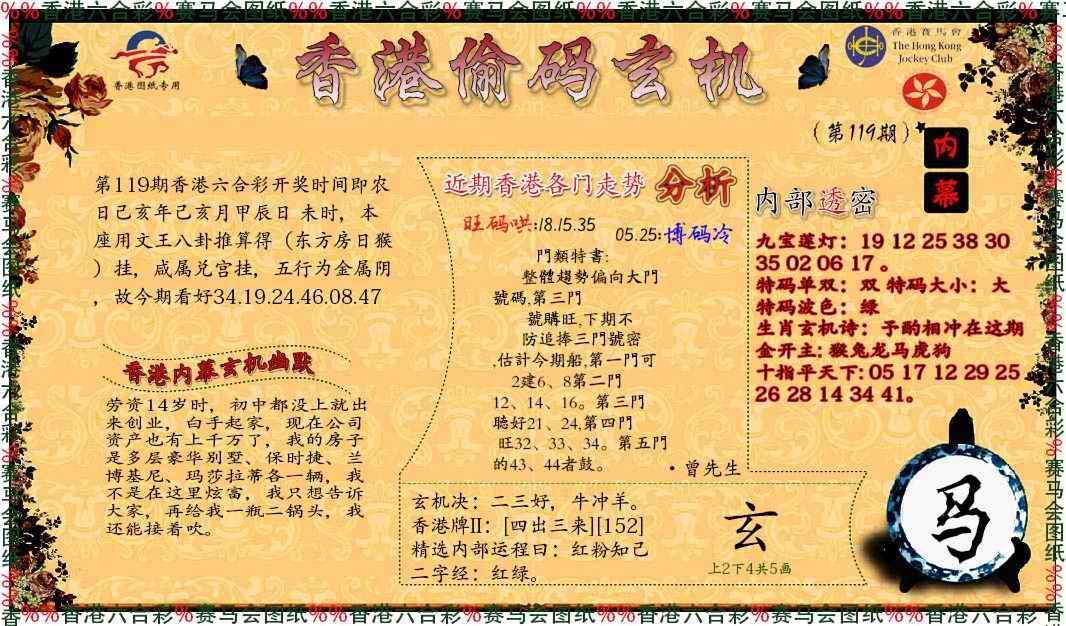 %%香港六合彩%赛马会图纸%%香港六合彩%赛马会图纸%%香港六合彩%赛马会图纸%%香港六合彩%赛
香港图纸专用
香港偷码玄机
香港賽馬會
The Hong Kong
Jockey Club
(第119期)
内
幕
第119期香港六合彩开奖时间即农
日己亥年己亥月甲辰日 未时，本
座用文王八卦推算得（东方房日猴
）挂，咸属兑宫挂，五行为金属阴
，故今期看好34.19.24.46.08.47
香港内幕玄机幽默
劳资14岁时，初中都没上就出
来创业，白手起家，现在公司
资产也有上千万了，我的房子
是多层豪华别墅、保时捷、兰
博基尼、玛莎拉蒂各一辆，我
不是在这里炫富，我只想告诉
大家，再给我一瓶二锅头，我
还能接着吹。
近期香港各门走势 分析
旺码哄:18.15.35
05.25:博码冷
門類特書:
整體趨勢偏向大門
號碼,第三門
號購旺,下期不
防追捧三門號密
,估計今期船,第一門可
2建6、8第二門
12、14、16。第三門
聽好21、24,第四門
旺32、33、34。第五門
的43、44者鼓。
·曾先生
玄机决：二三好，牛冲羊。
香港牌II：[四出三来][152]
精选内部运程曰：红粉知己
二字经：红绿。
玄
上2下4共5画
内部透密
九宝莲灯：19 12 25 38 30
35 02 06 17 。
特码单双：双 特码大小：大
特码波色：绿
生肖玄机诗：予酌相冲在这期
金开主: 猴兔龙马虎狗
十指平天下: 05 17 12 29 25
26 28 14 34 41。
马
香%%香港六合彩%赛马会图纸%%香港六合彩%赛马会图纸%%香港六合彩%赛马会图纸%%香港六合彩%